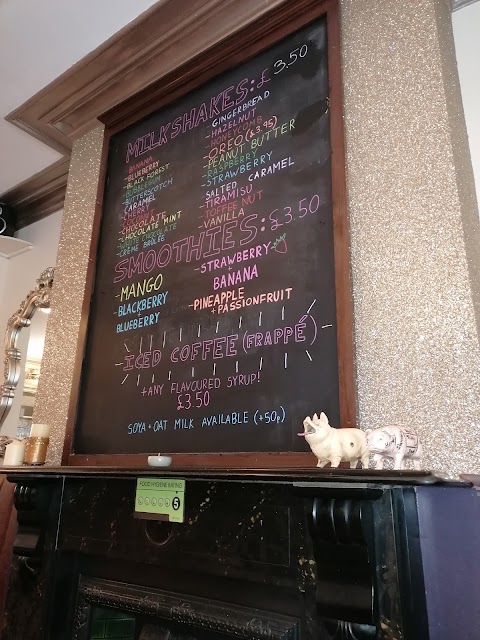 MILKSHAKES: £3.50
- BANANA
- BLUEBERRY
- BLACK FOREST
- BUBBLEGUM
- BUTTERSCOTCH
- CARAMEL
- CHERRY
- CHOCOLATE
- CHOCOLATE MINT
- WHITE CHOCOLATE
- CRÈME BRULÉE
- GINGERBREAD
- HAZELNUT
- HONEYCOMB
- OREO (£3.95)
- PEANUT BUTTER
- RASPBERRY
- STRAWBERRY
- SALTED CARAMEL
- TIRAMISU
- TOFFEE NUT
- VANILLA
SMOOTHIES: £3.50
- MANGO
- BLACKBERRY
BLUEBERRY
- STRAWBERRY
+
BANANA
- PINEAPPLE
+ PASSIONFRUIT
ICED COFFEE (FRAPPÉ)
+ ANY FLAVOURED SYRUP!
£3.50
SOYA + OAT MILK AVAILABLE (+50p)
FOOD HYGIENE RATING
5